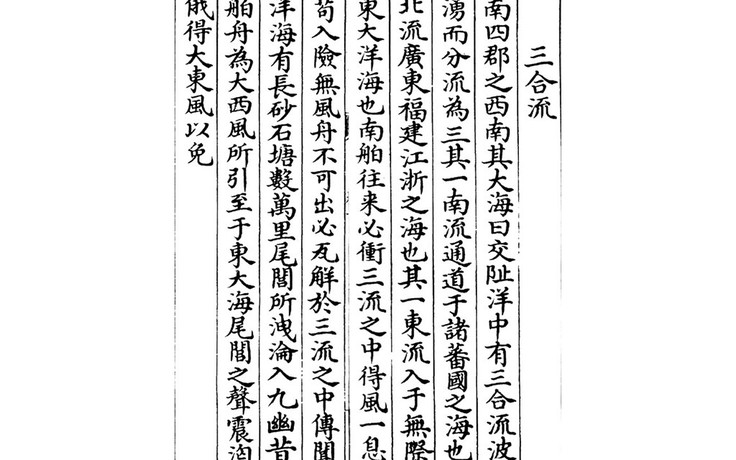 三合流
南四郡之西南其大海曰交阯洋中有三合流波
湧而分流為三其一南流通道于諸蕃國之海也
北流廣東福建江浙之海也其一東流入于無際
東大洋海也南舶往来必衝三流之中得風一息
苟入險無風舟不可出必瓦解於三流之中傳聞
洋海有長砂石塘數萬里尾閭所洩淪入九幽昔
舶舟為大西風所引至于東大海尾閭之聲震洶
俄得大東風以免